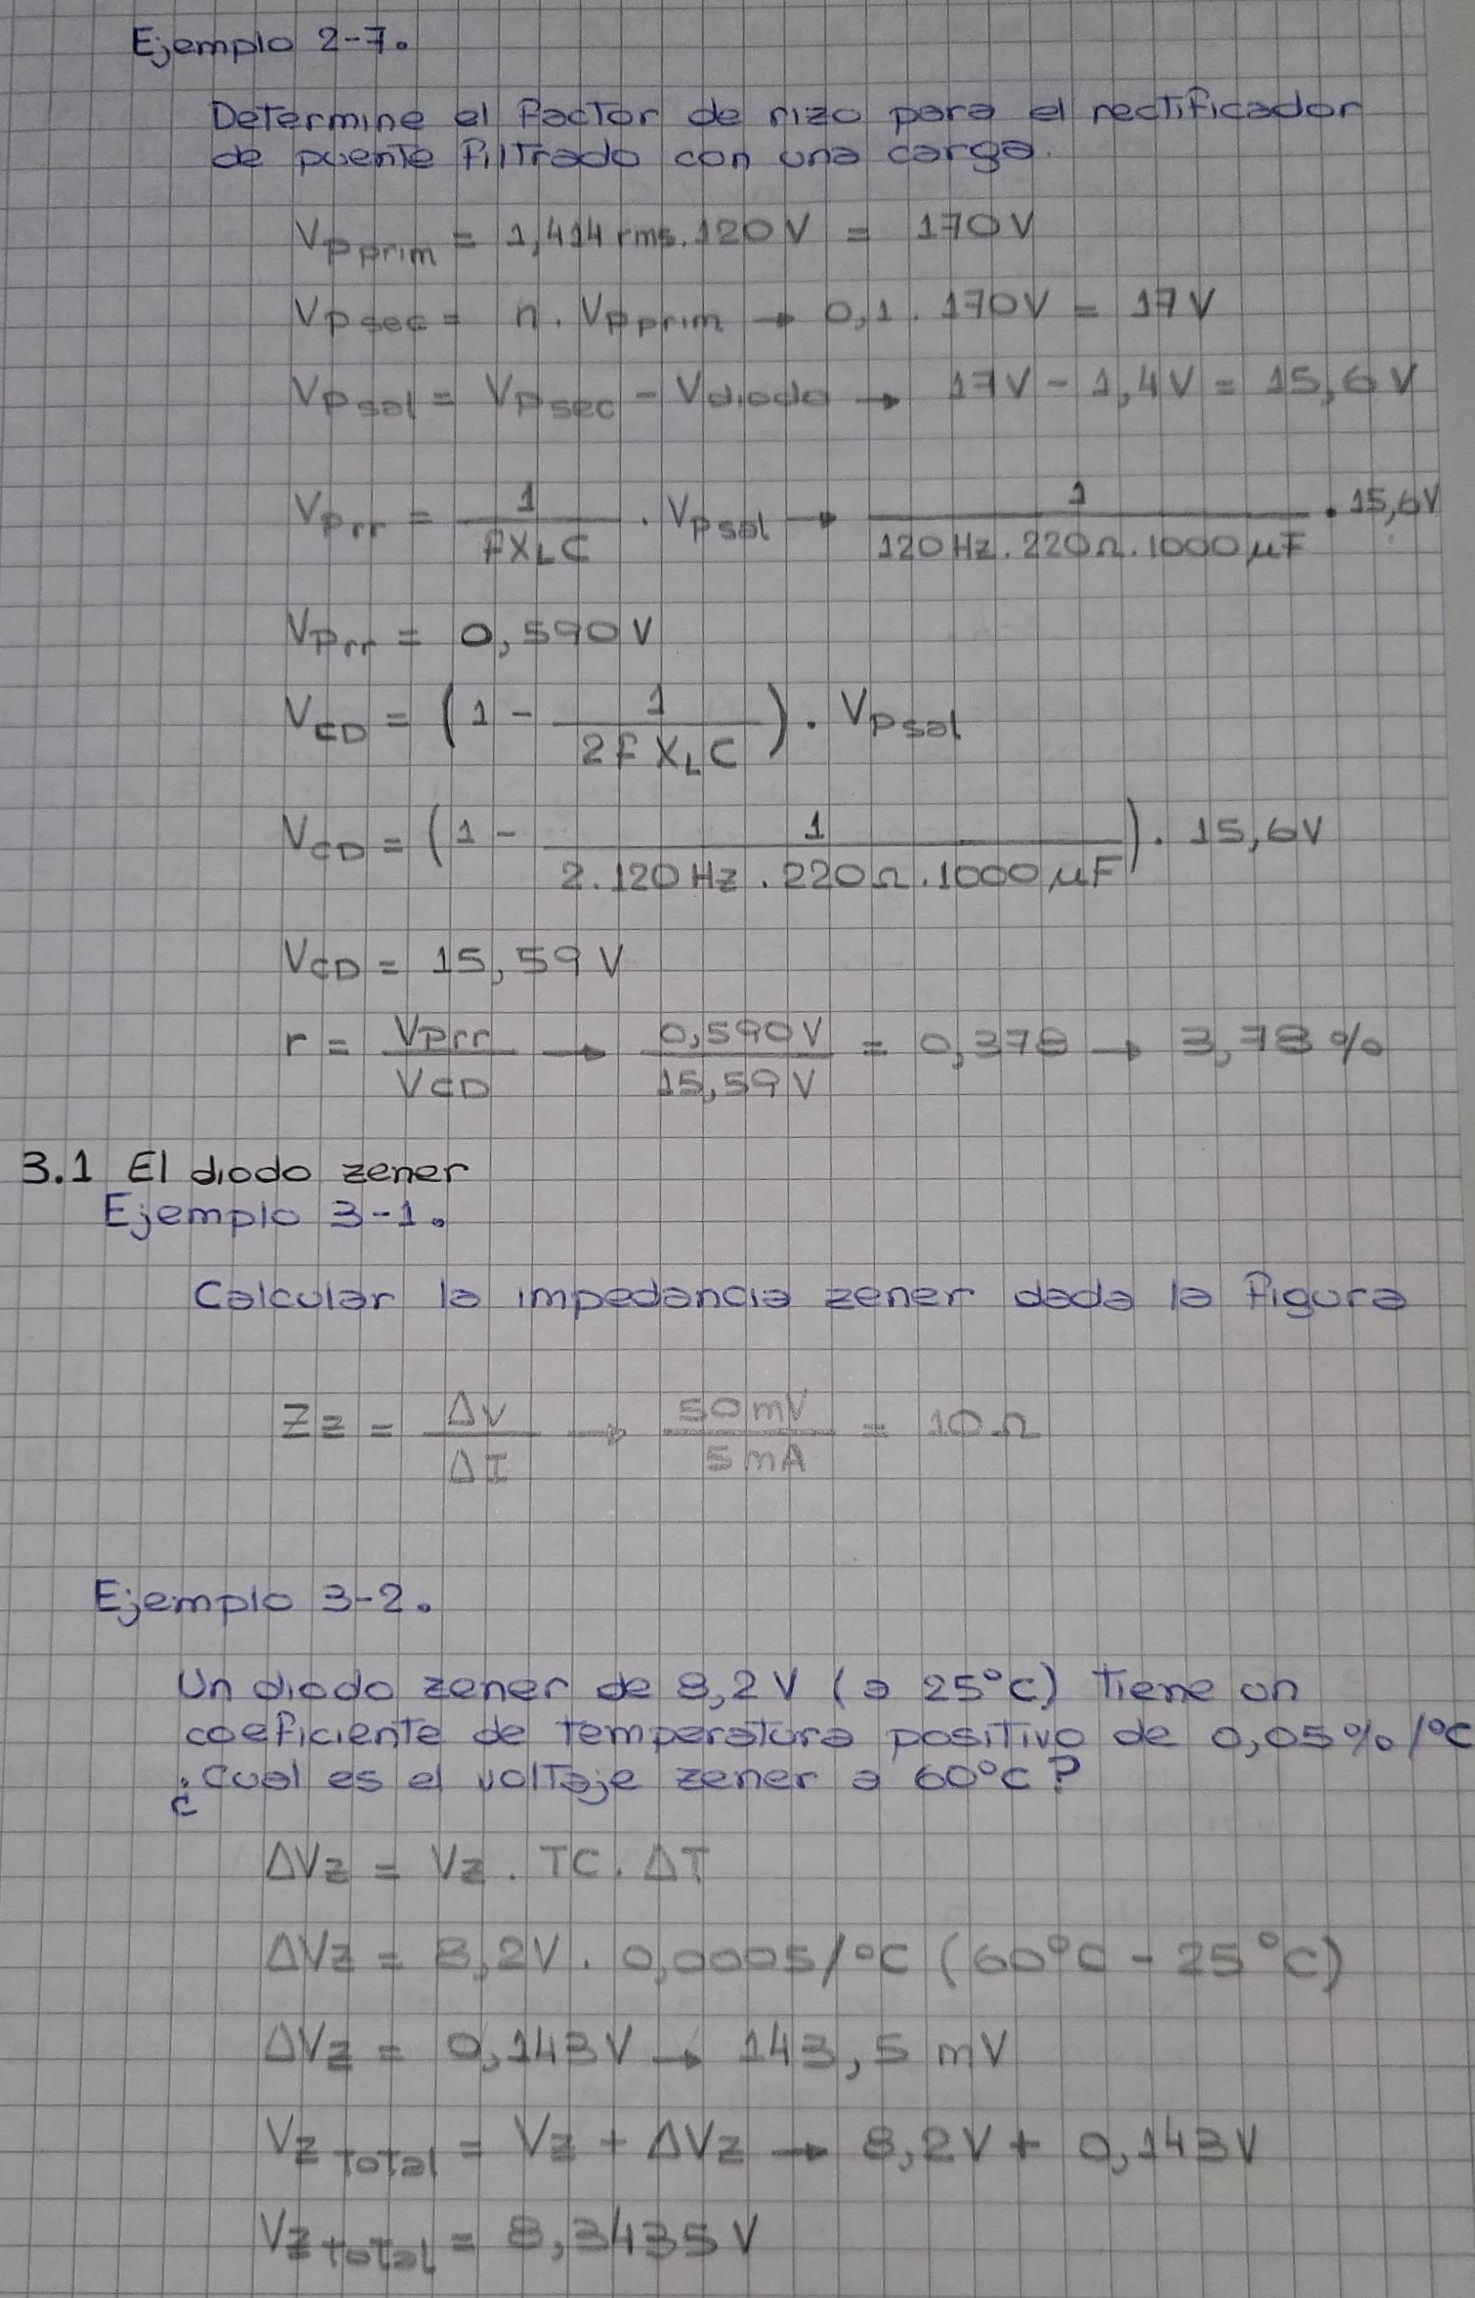 Ejemplo 2-7.
Determine el factor de rizo para el rectificador
de puente filtrado con una carga.
Vp prim = 1,414 rms . 120 V = 170 V
Vp sec = n . Vp prim → 0,1 . 170V = 17 V
Vp sal = Vp sec - V diodo → 17V - 1,4V = 15,6 V
Vp rr = 1 / (f XL C) . Vp sal → 1 / (120 Hz . 220 Ω . 1000 μF) . 15,6V
Vp rr = 0,590 V
VCD = (1 - 1 / (2 f XL C)) . Vp sal
VCD = (1 - 1 / (2 . 120 Hz . 220 Ω . 1000 μF)) . 15,6V
VCD = 15,59 V
r = Vp rr / VCD → 0,590 V / 15,59 V = 0,378 → 3,78 %
3.1 El diodo zener
Ejemplo 3-1.
Calcular la impedancia zener dada la figura
Zz = ΔV / ΔI → 50 mV / 5 mA = 10 Ω
Ejemplo 3-2.
Un diodo zener de 8,2 V (a 25°C) tiene un
coeficiente de temperatura positivo de 0,05% /°C
¿Cual es el voltaje zener a 60°C?
ΔVz = Vz . TC . ΔT
ΔVz = 8,2V . 0,0005/°C (60°C - 25°C)
ΔVz = 0,143V → 143,5 mV
Vz total = Vz + ΔVz → 8,2V + 0,143V
Vz total = 8,3435 V